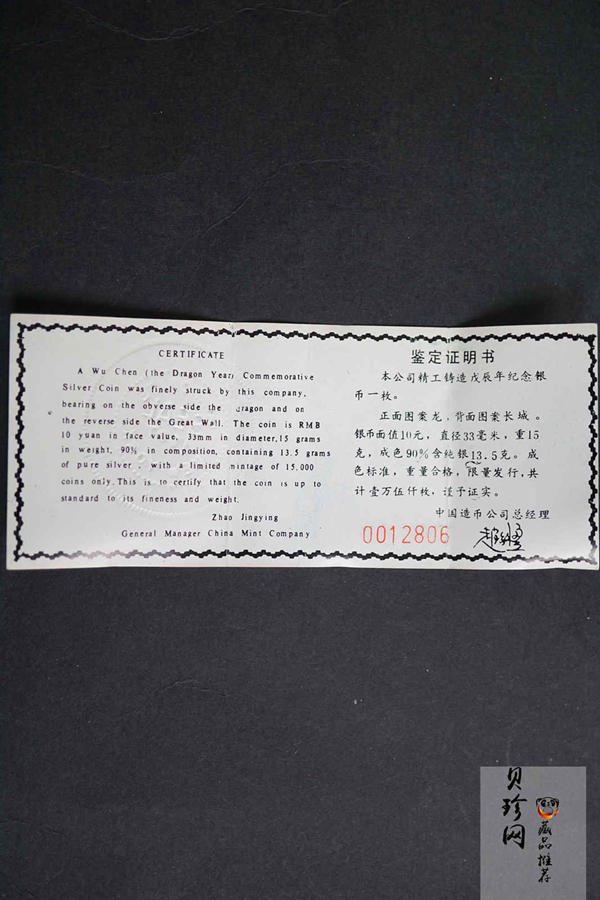 CERTIFICATE
A Wu Chen (the Dragon Year) Commemorative
Silver Coin was finely struck by this company,
bearing on the obverse side the dragon and on
the reverse side the Great Wall. The coin is RMB
10 yuan in face value, 33mm in diameter,15 grams
in weight, 90% in composition, containing 13.5 grams
of pure silver , with a limited mintage of 15,000
coins only.This is to certify that the coin is up to
standard to its fineness and weight.
Zhao Jingying
General Manager China Mint Company
鉴定证明书
本公司精工铸造戊辰年纪念银
币一枚。
正面图案龙,背面图案长城。
银币面值10元,直径33毫米,重15
克,成色90%含纯银13.5克。成
色标准,重量合格,限量发行,共
计壹万伍仟枚,谨予证实。
中国造币公司总经理
0012806
贝珍网
藏品推荐